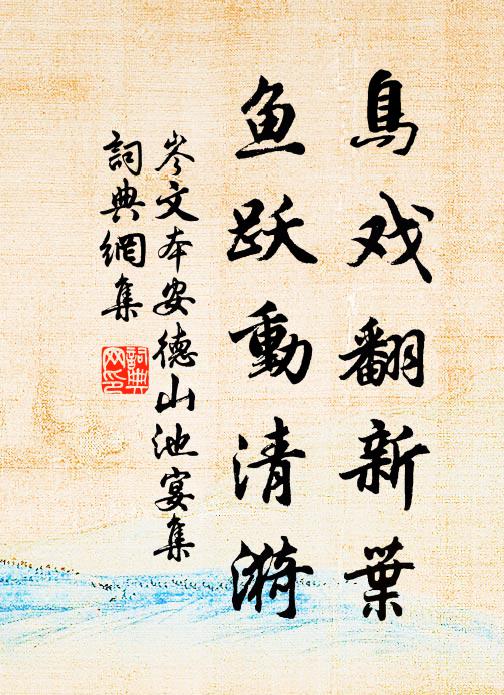 鸟戏翻新葉
鱼跃動清漪
岑文本安德山池宴集
詞典網集
詞典網印